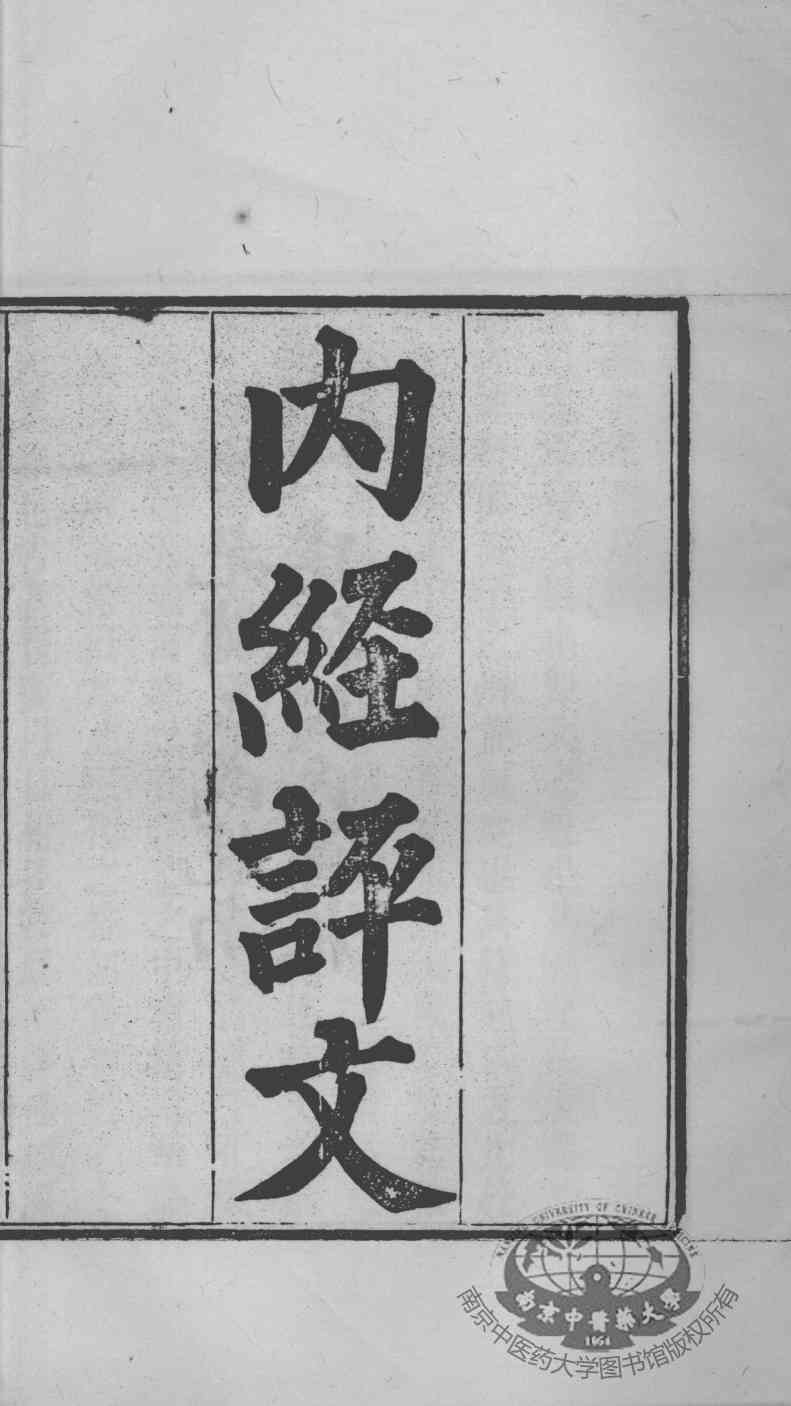 内經評文
NANJING UNIVERSITY OF CHINESE MEDICINE
南京中醫藥大學
1954
南京中医药大学图书馆版权所有